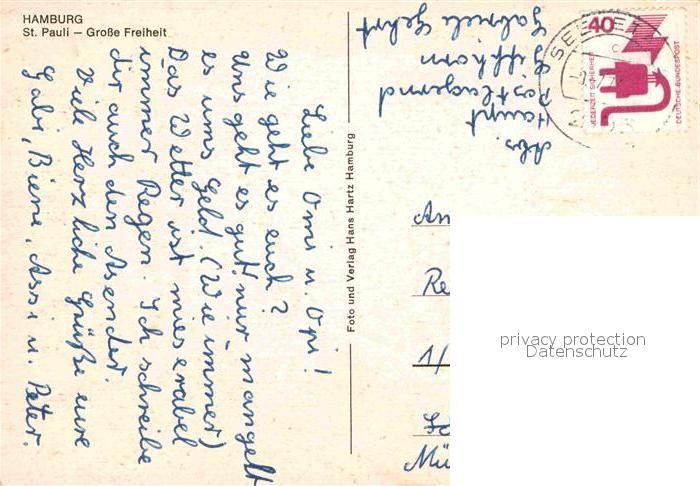 HAMBURG
St. Pauli — Große Freiheit
Liebe Omi u. Opi!
Wie geht es euch?
Uns geht es gut, nur mangelt
es ums Geld. (Wie immer)
Das Wetter ist mieserabel
immer Regen. Ich schreibe
dir auch den Absender.
Viele Herzliche Grüße eure
Gabi, Biene, Assi u. Peter.
Foto und Verlag Hans Hartz Hamburg
Abs.
Haupt
Postlagernd
Gifhorn
Gabriele Gehrt
40
JEDERZEIT SICHERHEIT
DEUTSCHE BUNDESPOST
An
Re
1/
Mü
privacy protection
Datenschutz